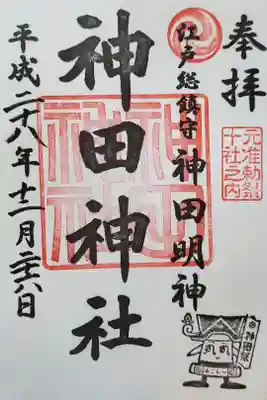 奉拝
元准勅祭
十社之内
江戸総鎮守 神田明神
神田神社
平成二十八年十二月二六日